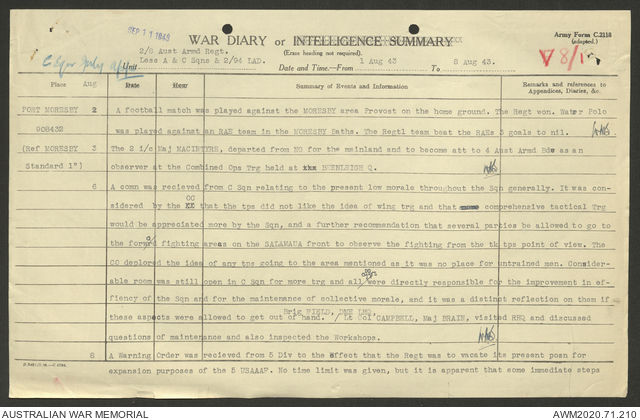 SEP 11 1943
WAR DIARY or INTELLIGENCE SUMMARY
Army Form C.2118
(adapted.)
(Erase heading not required).
Unit 2/8 Aust Armd Regt.
Less A & C Sqns & 2/94 LAD.
Date and Time:—From 1 Aug 43 To 8 Aug 43.
Place Aug Hour Summary of Events and Information Remarks and references to
Appendices, Diaries, &c.
PORT MORESBY 2 A football match was played against the MORESBY area Provost on the home ground. The Regt won. Water Polo
908432 was played against an RAE team in the MORESBY Baths. The Regtl team beat the RAEs 5 goals to nil.
(Ref MORESBY 3 The 2 i/c Maj MACINTYRE, departed from HQ for the mainland and to become att to 4 Aust Armd Bde as an
Standard 1") observer at the Combined Ops Trg held at xxx BEENLEIGH Q.
6 A comn was recieved from C Sqn relating to the present low morale throughout the Sqn generally. It was con-
sidered by the OC that the tps did not like the idea of wing trg and that comprehensive tactical Trg
would be appreciated more by the Sqn, and a further recommendation that several parties be allowed to go to
the forward fighting areas on the SALAMAUA front to observe the fighting from the tk tps point of view. The
CO deplored the idea of any tps going to the area mentioned as it was no place for untrained men. Consider-
able room was still open in C Sqn for more trg and all offrs were directly responsible for the improvement in ef-
ficiency of the Sqn and for the maintenance of collective morale, and it was a distinct reflection on them if
these aspects were allowed to get out of hand. / Brig FIELD, Lt Col CAMPBELL, Maj BRAIN, visited RHQ and discussed
questions of maintenance and also inspected the Workshops.
8 A Warning Order was recieved from 5 Div to the effect that the Regt was to vacate its present posn for
expansion purposes of the 5 USAAAF. No time limit was given, but it is apparent that some immediate steps
AUSTRALIAN WAR MEMORIAL
AWM2020.71.210